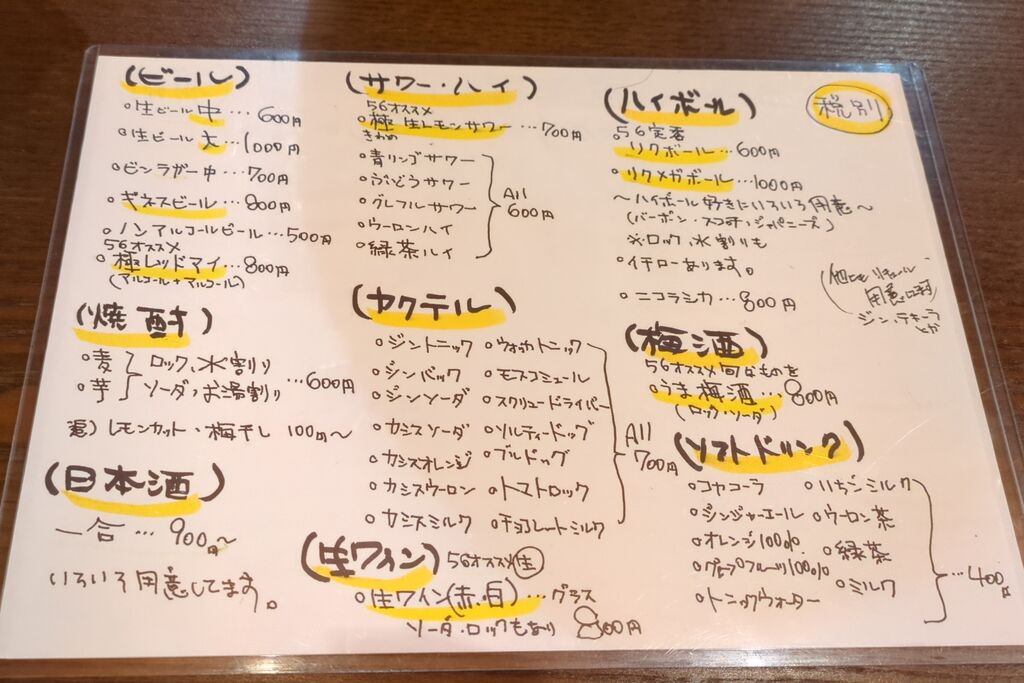 (ビール)
○生ビール中…600円
○生ビール大…1000円
○ビンラガー中…700円
○ギネスビール…800円
○ノンアルコールビール…500円
56オススメ
○極レッドアイ…800円
(アルコール+アルコール)
(焼酎)
○麦 ロック、水割り
○芋 ソーダ、お湯割り
…600円
レモンカット・梅干し 100円〜
(日本酒)
一合…900円〜
いろいろ用意してます。
(サワー・ハイ)
56オススメ
○極生レモンサワー…700円
きわめ
○青リンゴサワー
○ぶどうサワー
○グレフルサワー
○ウーロンハイ
○緑茶ハイ
All
600円
(カクテル)
○ジントニック ○ウォッカトニック
○ジンバック ○モスコミュール
○ジンソーダ ○スクリュードライバー
○カシスソーダ ○ソルティードッグ
○カシスオレンジ ○ブルドッグ
○カシスウーロン ○トマトロック
○カシスミルク ○チョコレートミルク
All
700円
(生ワイン) 56オススメ 生
○生ワイン(赤.白)…グラス
ソーダ・ロックもあり 800円
税別
(ハイボール)
56定番
○リクボール…600円
○リクメガボール…1000円
〜ハイボール好きにいろいろ用意〜
(バーボン・スコッチ・ジャパニーズ)
※ロック、水割りも
○イチローあります。
○ニコラシカ…800円
他にもリキュール
ジン、テキーラ
(梅酒)
56オススメ 旬なものを
○うま梅酒…800円
(ロック・ソーダ)
(ソフトドリンク)
○コカコーラ ○いちごミルク
○ジンジャーエール ○ウーロン茶
○オレンジ100% ○緑茶
○グレープフルーツ100% ○ミルク
○トニックウォーター
…400円